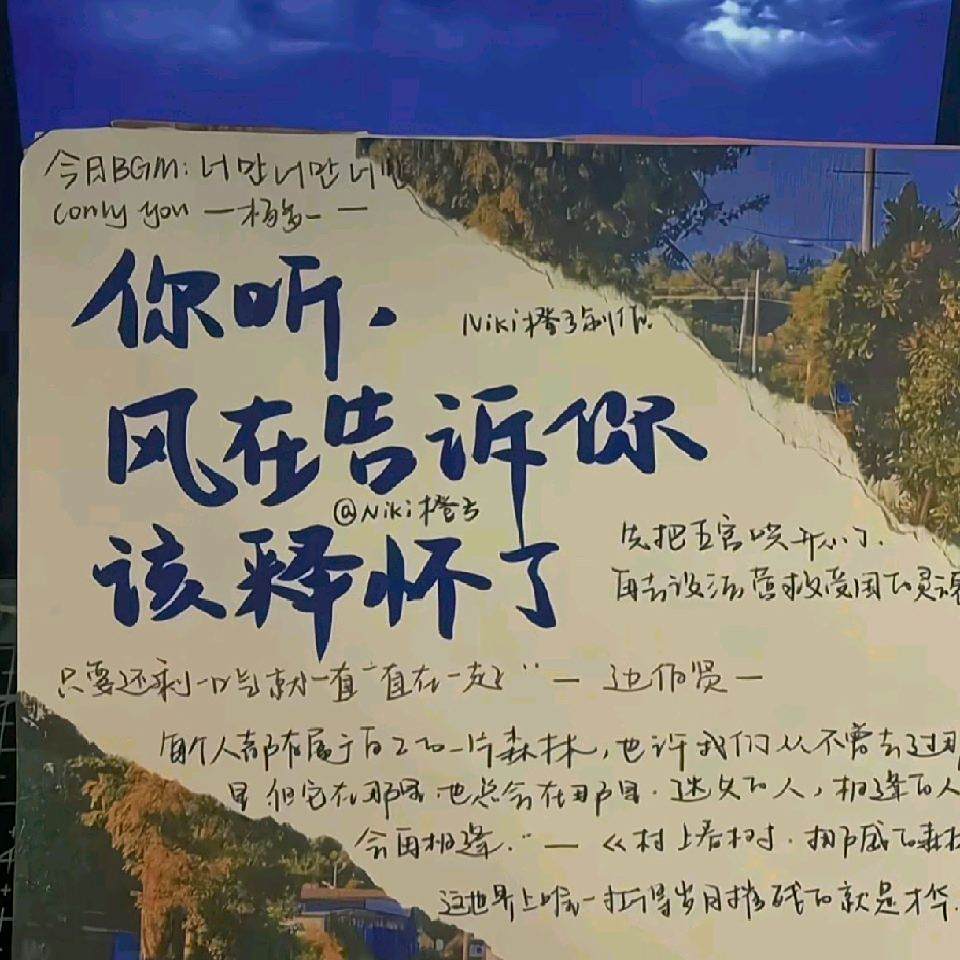 今日BGM: 너만 너만 너만
(only you —杨多一—
你听，
Niki橙子制作
风在告诉你
@Niki橙子
该释怀了
先把五官哄开心了，
再去设法营救受困的灵魂
只要还剩一口气就一直“直在一起” — 边伯贤 —
每个人都有属于自己的一片森林，也许我们从不曾去过那
里 但它在那里，也总会在那里。迷失的人，相逢的人
会再相逢。” — 《村上春树·挪威的森林
这世界上唯一扛得岁月摧残的就是才华